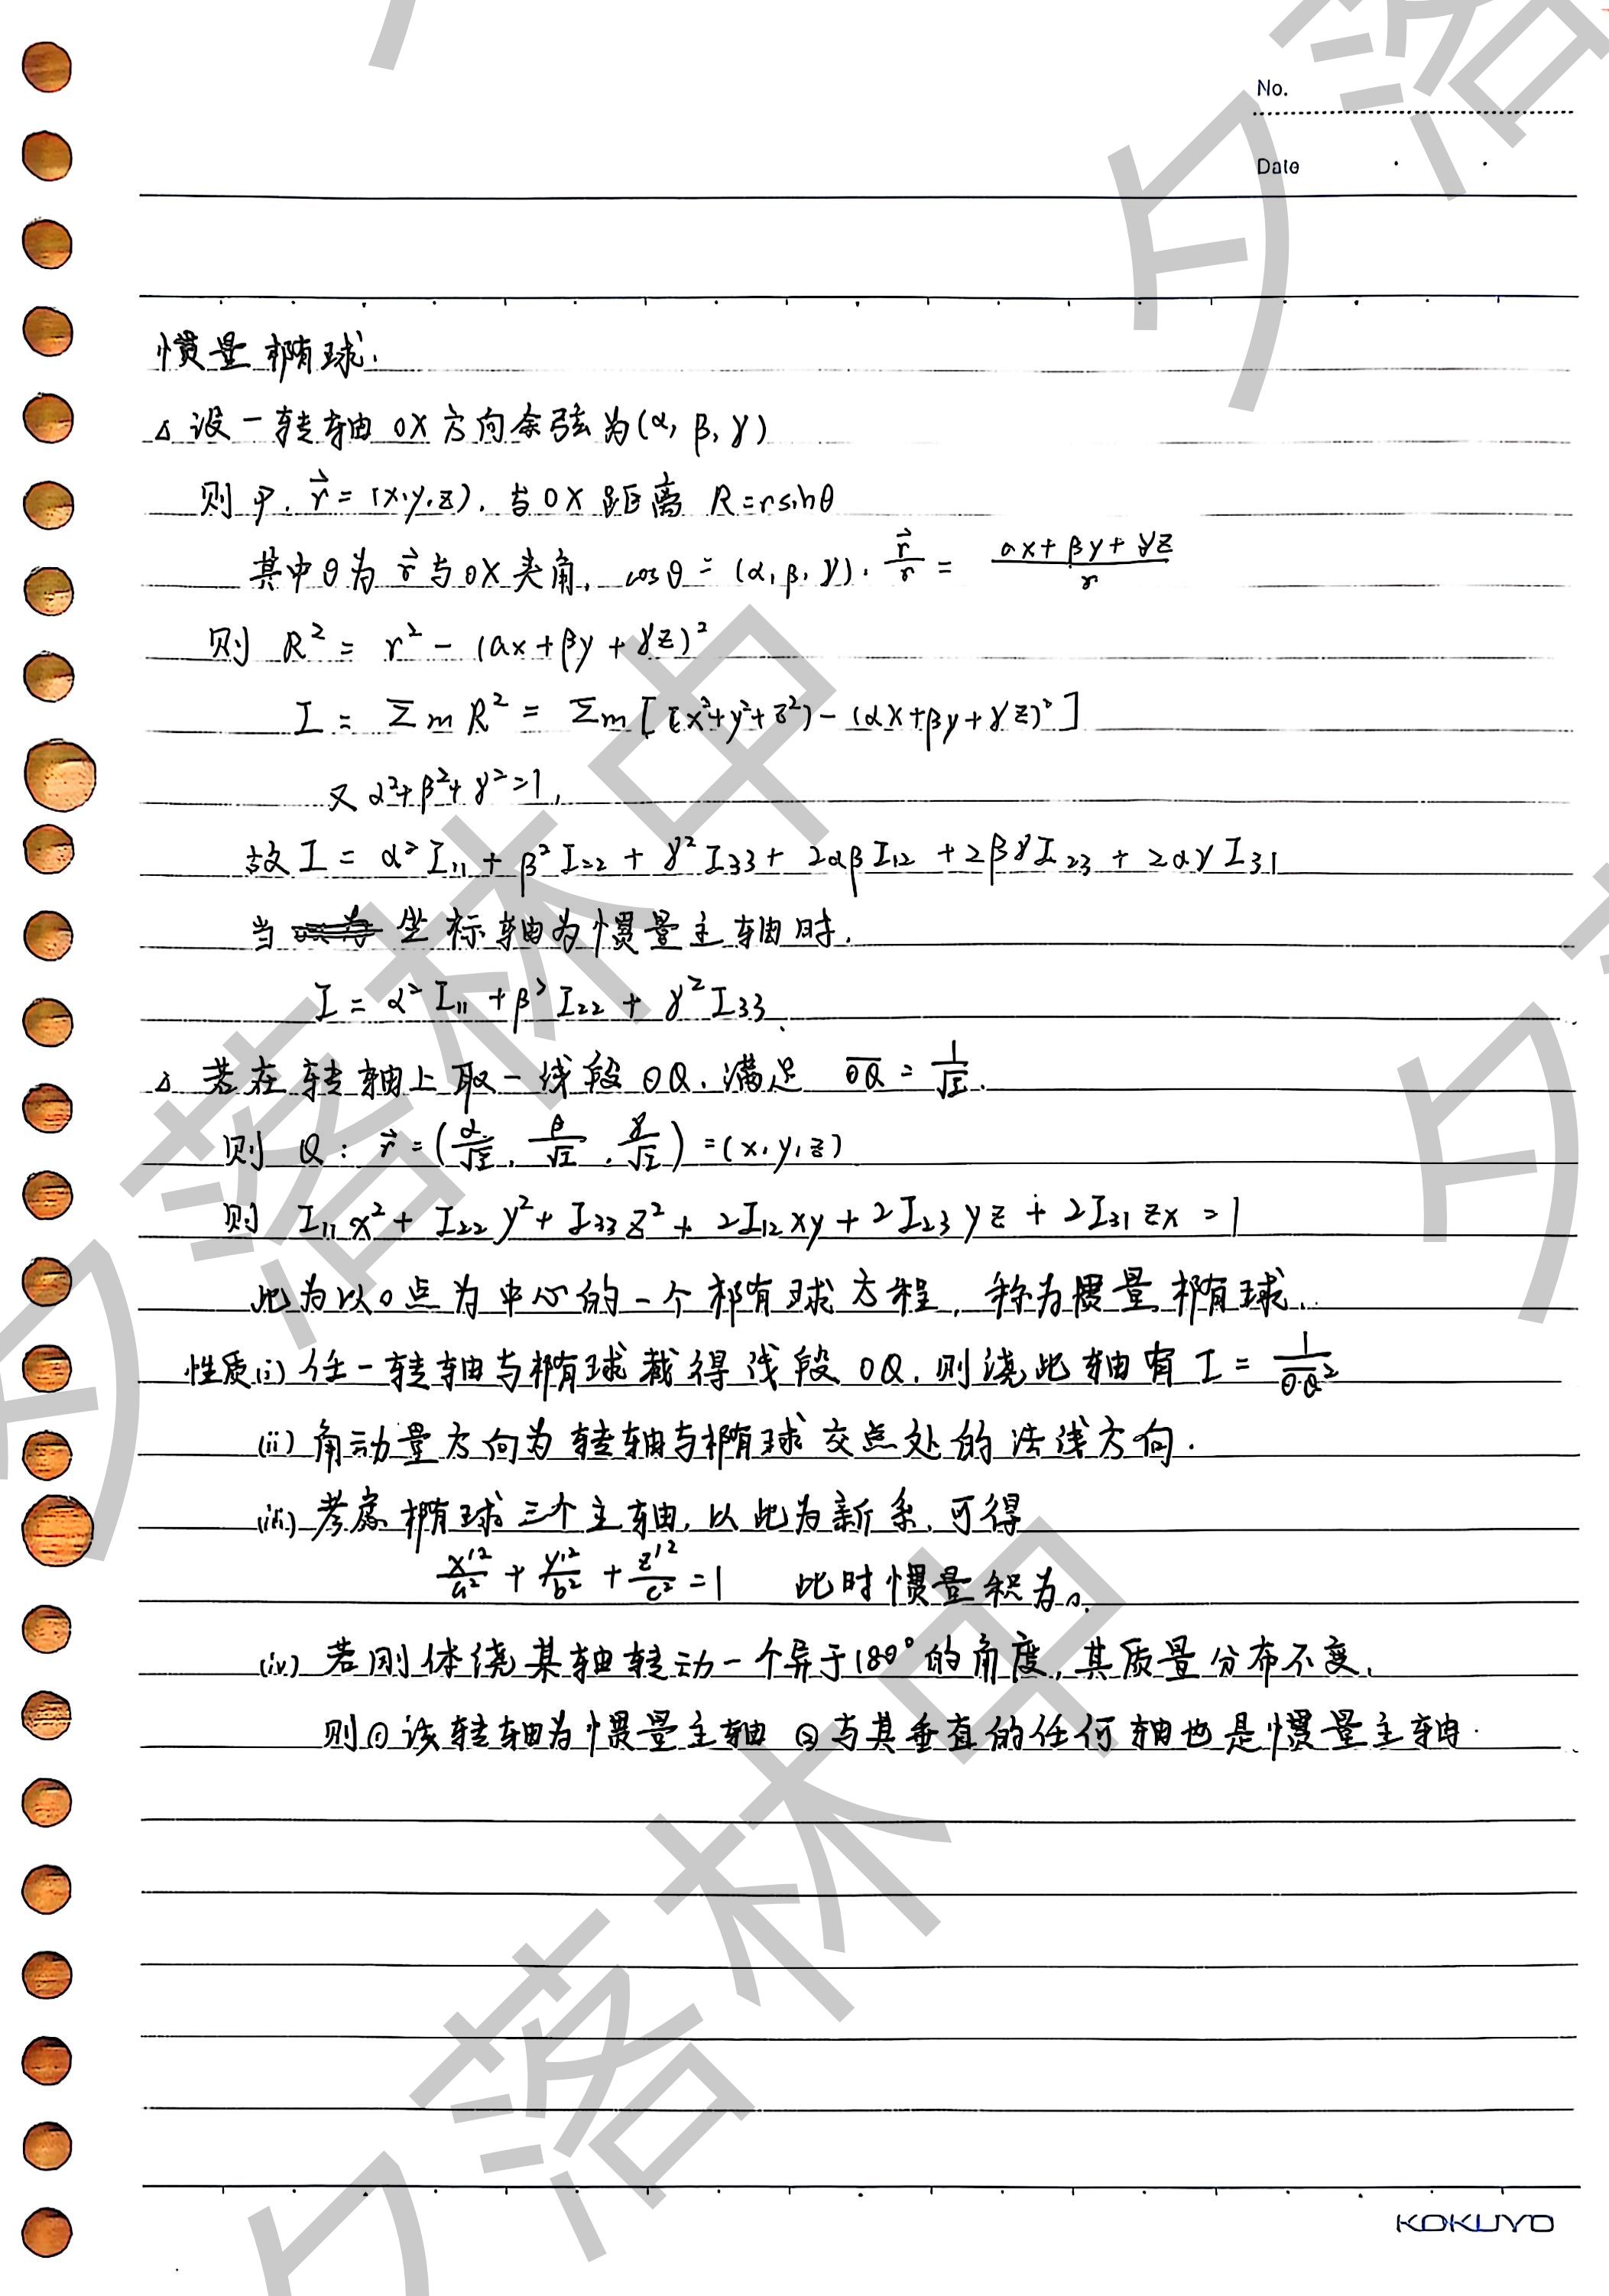 No.
Date
惯量椭球.
△ 设一转轴 OX 方向余弦为(α, β, γ)
则 P. r⃗ = (x,y,z). 与OX 距离 R=rsinθ
其中θ为 r⃗ 与OX夹角, cosθ = (α,β,γ)· r⃗/r = (αx+βy+γz)/r
则 R² = r² - (αx+βy+γz)²
I = Σm R² = Σm[(x²+y²+z²)-(αx+βy+γz)²]
又 α²+β²+γ²=1,
故 I = α²I₁₁ + β²I₂₂ + γ²I₃₃ + 2αβI₁₂ + 2βγI₂₃ + 2αγI₃₁
当 坐标轴为惯量主轴时.
I = α²I₁₁ + β²I₂₂ + γ²I₃₃.
△ 若在转轴上取一线段OQ.满足 OQ̅ = 1/√I.
则 Q: r⃗ = (α/√I, β/√I, γ/√I) = (x,y,z)
则 I₁₁x² + I₂₂y² + I₃₃z² + 2I₁₂xy + 2I₂₃yz + 2I₃₁zx = 1
此为以O点为中心的一个椭球方程, 称为惯量椭球.
性质(i) 任一转轴与椭球截得线段 OQ. 则绕此轴有 I = 1/OQ̅²
(ii) 角动量方向为转轴与椭球交点处的法线方向.
(iii) 考虑椭球三个主轴, 以此为新系, 可得
x'²/a² + y'²/b² + z'²/c² = 1 此时惯量积为0.
(iv) 若刚体绕某轴转动一个异于180°的角度, 其质量分布不变,
则①该转轴为惯量主轴 ②与其垂直的任何轴也是惯量主轴.
KOKUYO
夕落林中
夕落林中
夕落
夕